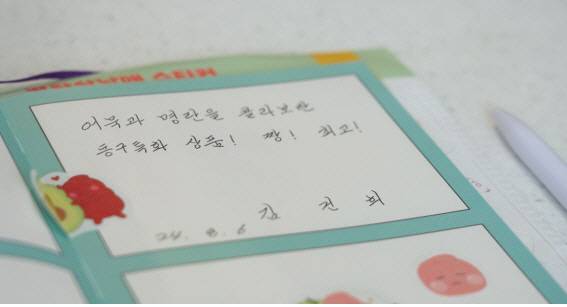 스티커
어묵과 명란을 콜라보한
동구특화 상품! 짱! 최고!
김 진 희
24. 8. 6